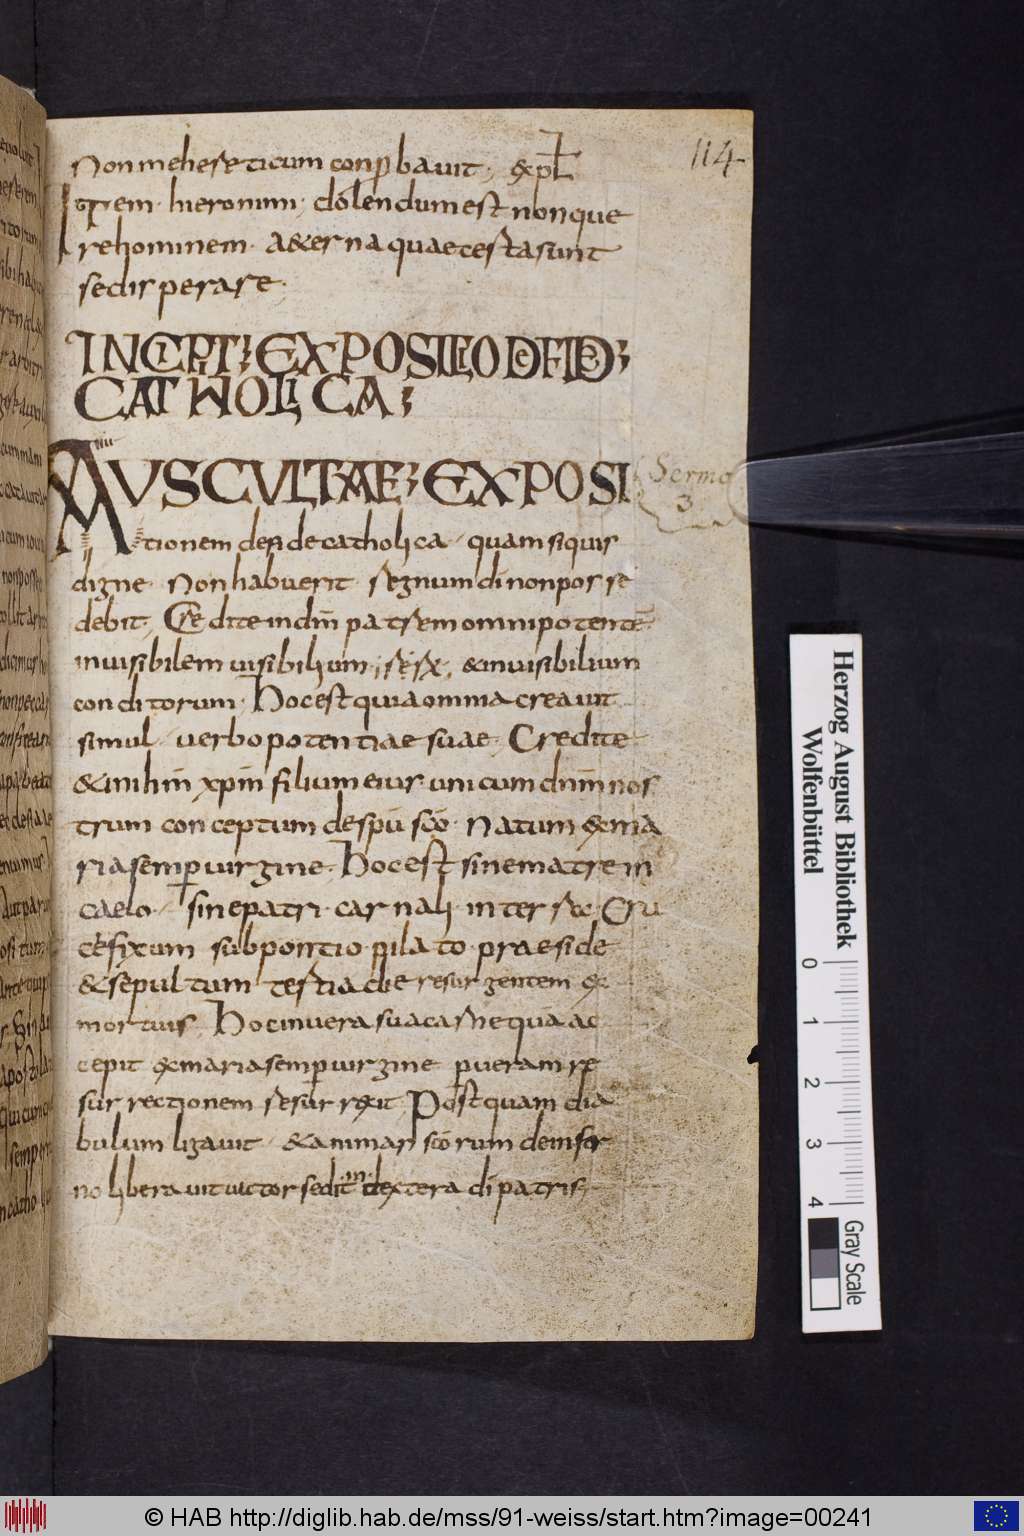 114
Non me heseticum conp bavit; expł
Item hieronimi; dolendum est non que
re hominem. a&erna quae testa sunt
sed isperare;
INCIPIT; EXPOSITIO DE FIDE;
CATHOLICA;
AUSCULTATAE; EXPOSI
Sermo
3
tionem de fide catholica. quam siquis
digne. Non habuerit regnum di non posse
debit; Credite in dm patrem omnipotentē
invisibilem visibilium, & invisibilium
conditorum. Hoc est quia omnia creavit
simul verbo potentiae suae. Credite
& in ihm xpm filium eius unicum dnm nos
trum conceptum de spu sco. Natum ex ma
ria semp virgine. Hoc est sine matre in
caelo. sine patri carnali in terrec. Cru
cefixum sub pontio pilato praeside
& sepultum tertia die resurgentem ex
mortuis. Hoc in vera sua carne qua ac
cepit ex maria semp virgine p veram re
surrectionem resurrexit. Postquam dia
bulum ligavit. & animas scorum de infer
no liberavit victor sedit in dextera di patris,
Herzog August Bibliothek
Wolfenbüttel
0 1 2 3 4
Gray Scale
© HAB http://diglib.hab.de/mss/91-weiss/start.htm?image=00241